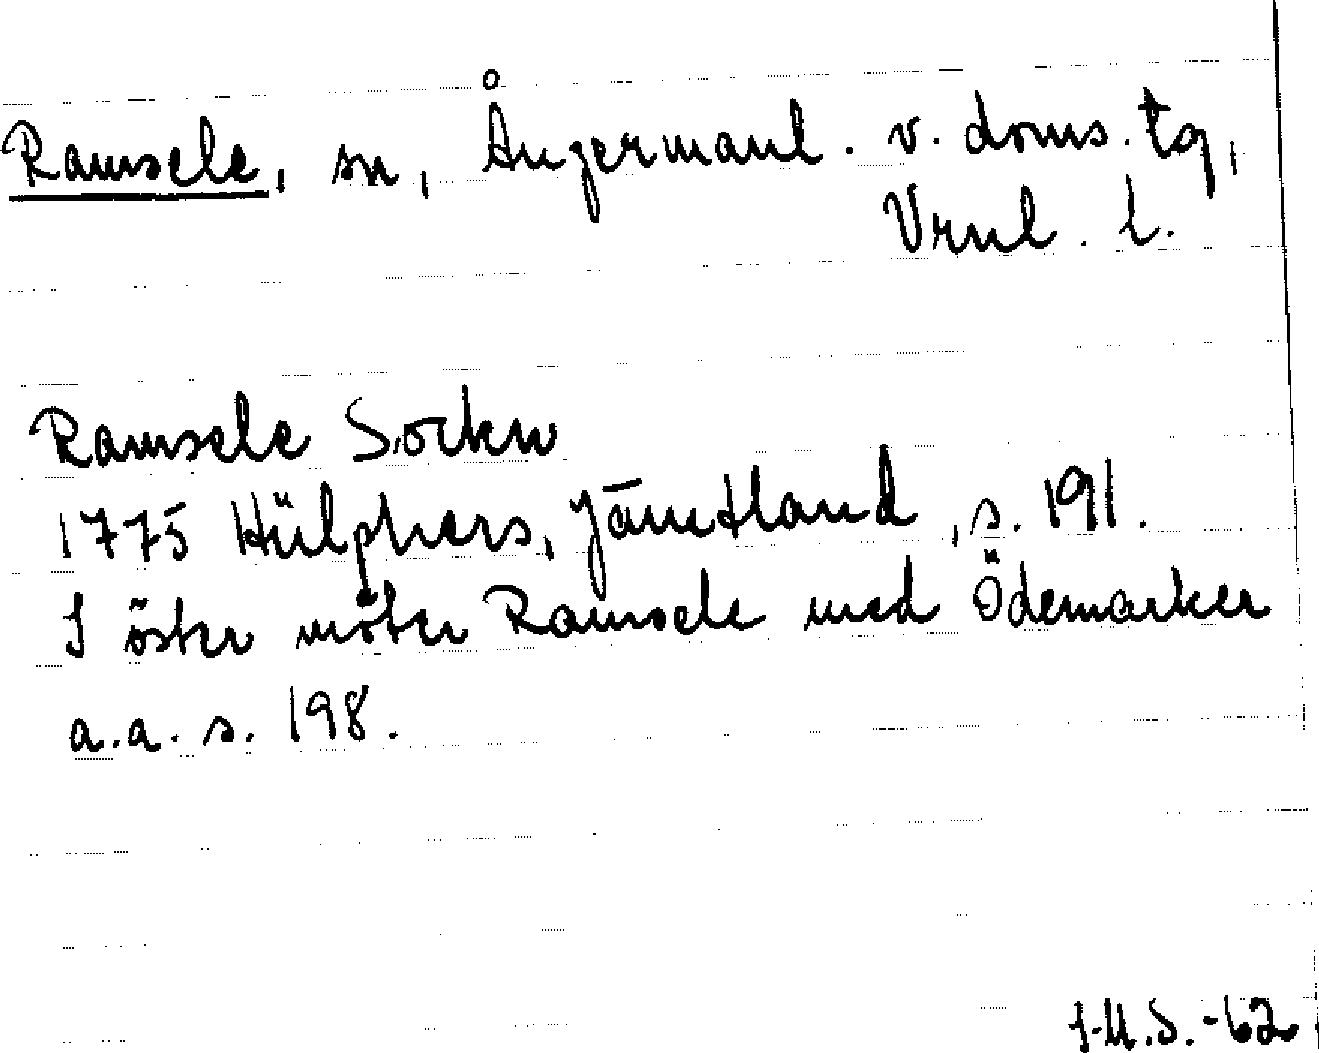 Ramsele, sn, Ångermanl. v. doms. tg,
Vrnl. l.
Ramsele Sockn
1775 Hülphers, Jämtland, s. 191.
I öster möter Ramsele med Ödemarker
a.a. s. 198.
I-M.S.-62